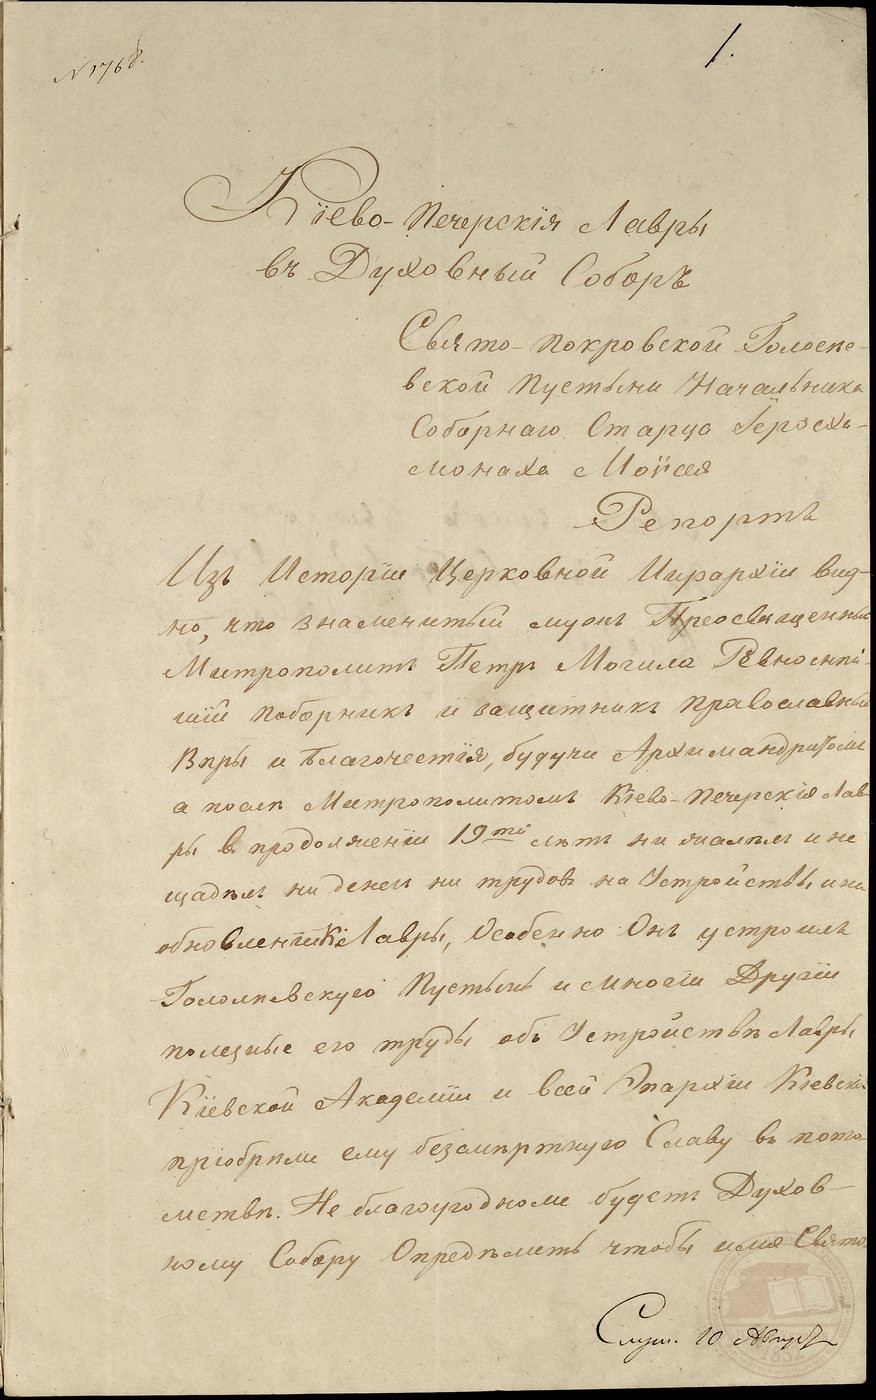 № 1768.
1.
Кіево-Печерскія Лавры
въ Духовный Соборъ
Свято-Покровской Голосѣе-
вской Пустыни Начальника
Соборнаго Старца Іеросхи-
монаха Моѵсея
Репортъ
Изъ Исторіи Церковной Иирархіи вид-
но, что знаменитый мужъ Преосвященный
Митрополитъ Петръ Могила Ревноснѣй-
шій поборникъ и защитникъ православный
Вѣры и благочестія, будучи Архимандритомъ
а послѣ Митрополитомъ Кіево-Печерскія Лав
ры в продолженіи 19ти лѣтъ ни жалѣлъ и не
щадѣлъ ни денегъ ни трудовъ на Устройствы и на
обновленіи Лавры, Особенно Онъ устроилъ
Голосѣевскую Пустынь и многіи Другіи
полезные его труды объ Устройствѣ Лавры
Кіевской Академіи и всей Эпархіи Кіевской
пріобрѣли ему безсмѣртную Славу въ пото
мствѣ. Не благоугодноли будетъ Духов-
ному Собору Опредѣлить чтобы имя Свято
Слуш. 10 Августа
1832